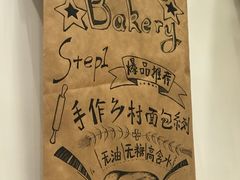 Bakery
Step1
爆品推荐
手作乡村面包系列
无油 无糖 高含水